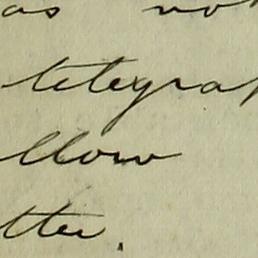 as not
telegrap
llow
tter.